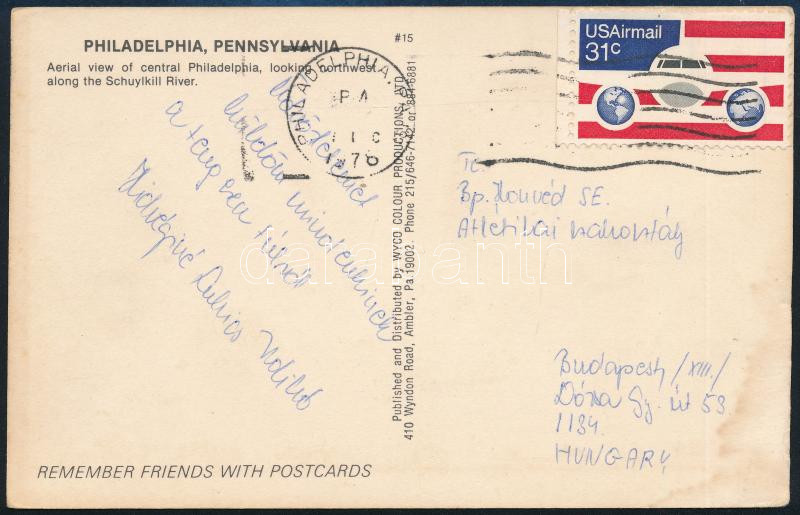 PHILADELPHIA, PENNSYLVANIA
Aerial view of central Philadelphia, looking northwest
along the Schuylkill River.
#15
USAirmail
31c
PHILADELPHIA, PA
PA
1976
Üdvözletemet
küldöm mindenkinek
a tengeren túlról
Ildikó
Published and Distributed by WYCO COLOUR PRODUCTIONS, LTD.
410 Wyndon Road, Ambler, Pa. 19002. Phone 215/646-7142 or 884-6881
To:
Bp. Honvéd SE.
Atlétikai szakosztály
Budapest /XIII./
Dózsa Gy. út 53
1134.
HUNGARY
REMEMBER FRIENDS WITH POSTCARDS
darabanth